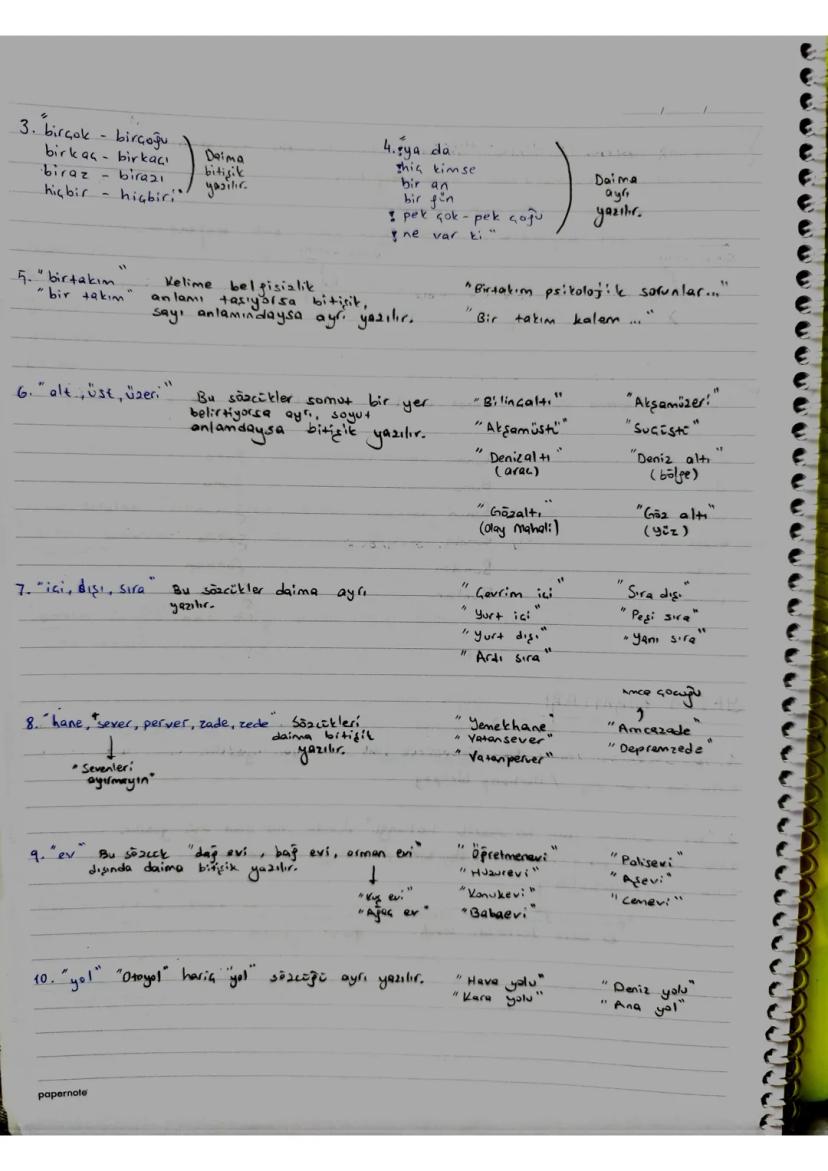 3. "birçok - birçoğu
birkaç - birkaçı
biraz - birazı
hiçbir - hiçbiri"
Daima
bitişik
yazılır.
4. "ya da
hiç kimse
bir an
bir gün
pek çok - pek çoğu
ne var ki"
Daima
ayrı
yazılır.
5. "birtakım"
"bir takım"
Kelime belgisizlik
anlamı taşıyorsa bitişik,
sayı anlamındaysa ayrı yazılır.
"Birtakım psikolojik sorunlar..."
"Bir takım kalem ..."
6. "alt, üst, üzeri"
Bu sözcükler somut bir yer
belirtiyorsa ayrı, soyut
anlamdaysa bitişik yazılır.
"Bilinçaltı"
"Akşamüstü"
"Denizaltı"
(araç)
"Gözaltı"
(Olay mahali)
"Akşamüzeri"
"Suçüstü"
"Deniz altı"
(bölge)
"Göz altı"
(yüz)
7. "içi, dışı, sıra" Bu sözcükler daima ayrı
yazılır.
"Çevrim içi"
"Yurt içi"
"Yurt dışı"
"Ardı sıra"
"Sıra dışı"
"Peşi sıra"
"Yanı sıra"
8. "hane, sever, perver, zade, zede" Sözcükleri
daima bitişik
yazılır.
"Sevenleri
ayırmayın"
"Yemekhane"
"Vatansever"
"Vatanperver"
amca çocuğu
"Amcazade"
"Depremzede"
9. "ev" Bu sözcük "dağ evi, bağ evi, orman evi"
dışında daima bitişik yazılır.
"Kuş evi"
"Ağaç ev"
"Öğretmenevi"
"Huzurevi"
"Konukevi"
"Babaevi"
"Polisevi"
"Aşevi"
"Cemevi"
10. "yol" "Otoyol" hariç "yol" sözcüğü ayrı yazılır.
"Hava yolu"
"Kara yolu"
"Deniz yolu"
"Ana yol"
papernote